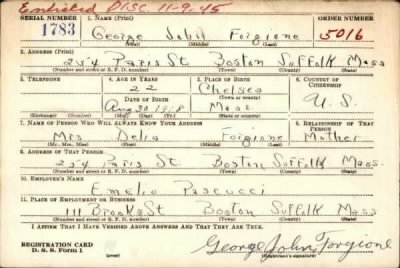 Enlisted Disc 11-9-45
SERIAL NUMBER 1. NAME (Print) ORDER NUMBER
1783 George John Forgione 5016
(First) (Middle) (Last)
2. ADDRESS (Print)
254 Paris St Boston Suffolk Mass
(Number and street or R. F. D. number) (Town) (County) (State)
3. TELEPHONE 4. AGE IN YEARS 5. PLACE OF BIRTH 6. COUNTRY OF CITIZENSHIP
22 Chelsea
DATE OF BIRTH (Town or county)
Aug 30 1918 Mass U. S.
(Exchange) (Number) (Mo.) (Day) (Yr.) (State or country)
7. NAME OF PERSON WHO WILL ALWAYS KNOW YOUR ADDRESS 8. RELATIONSHIP OF THAT PERSON
Mrs Delia Forgione Mother
(Mr., Mrs., Miss) (First) (Middle) (Last)
9. ADDRESS OF THAT PERSON
254 Paris St Boston Suffolk Mass.
(Number and street or R. F. D. number) (Town) (County) (State)
10. EMPLOYER'S NAME
Emelio Pascucci
11. PLACE OF EMPLOYMENT OR BUSINESS
111 Brooks St Boston Suffolk Mass
(Number and street or R. F. D. number) (Town) (County) (State)
I AFFIRM THAT I HAVE VERIFIED ABOVE ANSWERS AND THAT THEY ARE TRUE.
REGISTRATION CARD
D. S. S. Form 1 George John Forgione
(Registrant's signature)